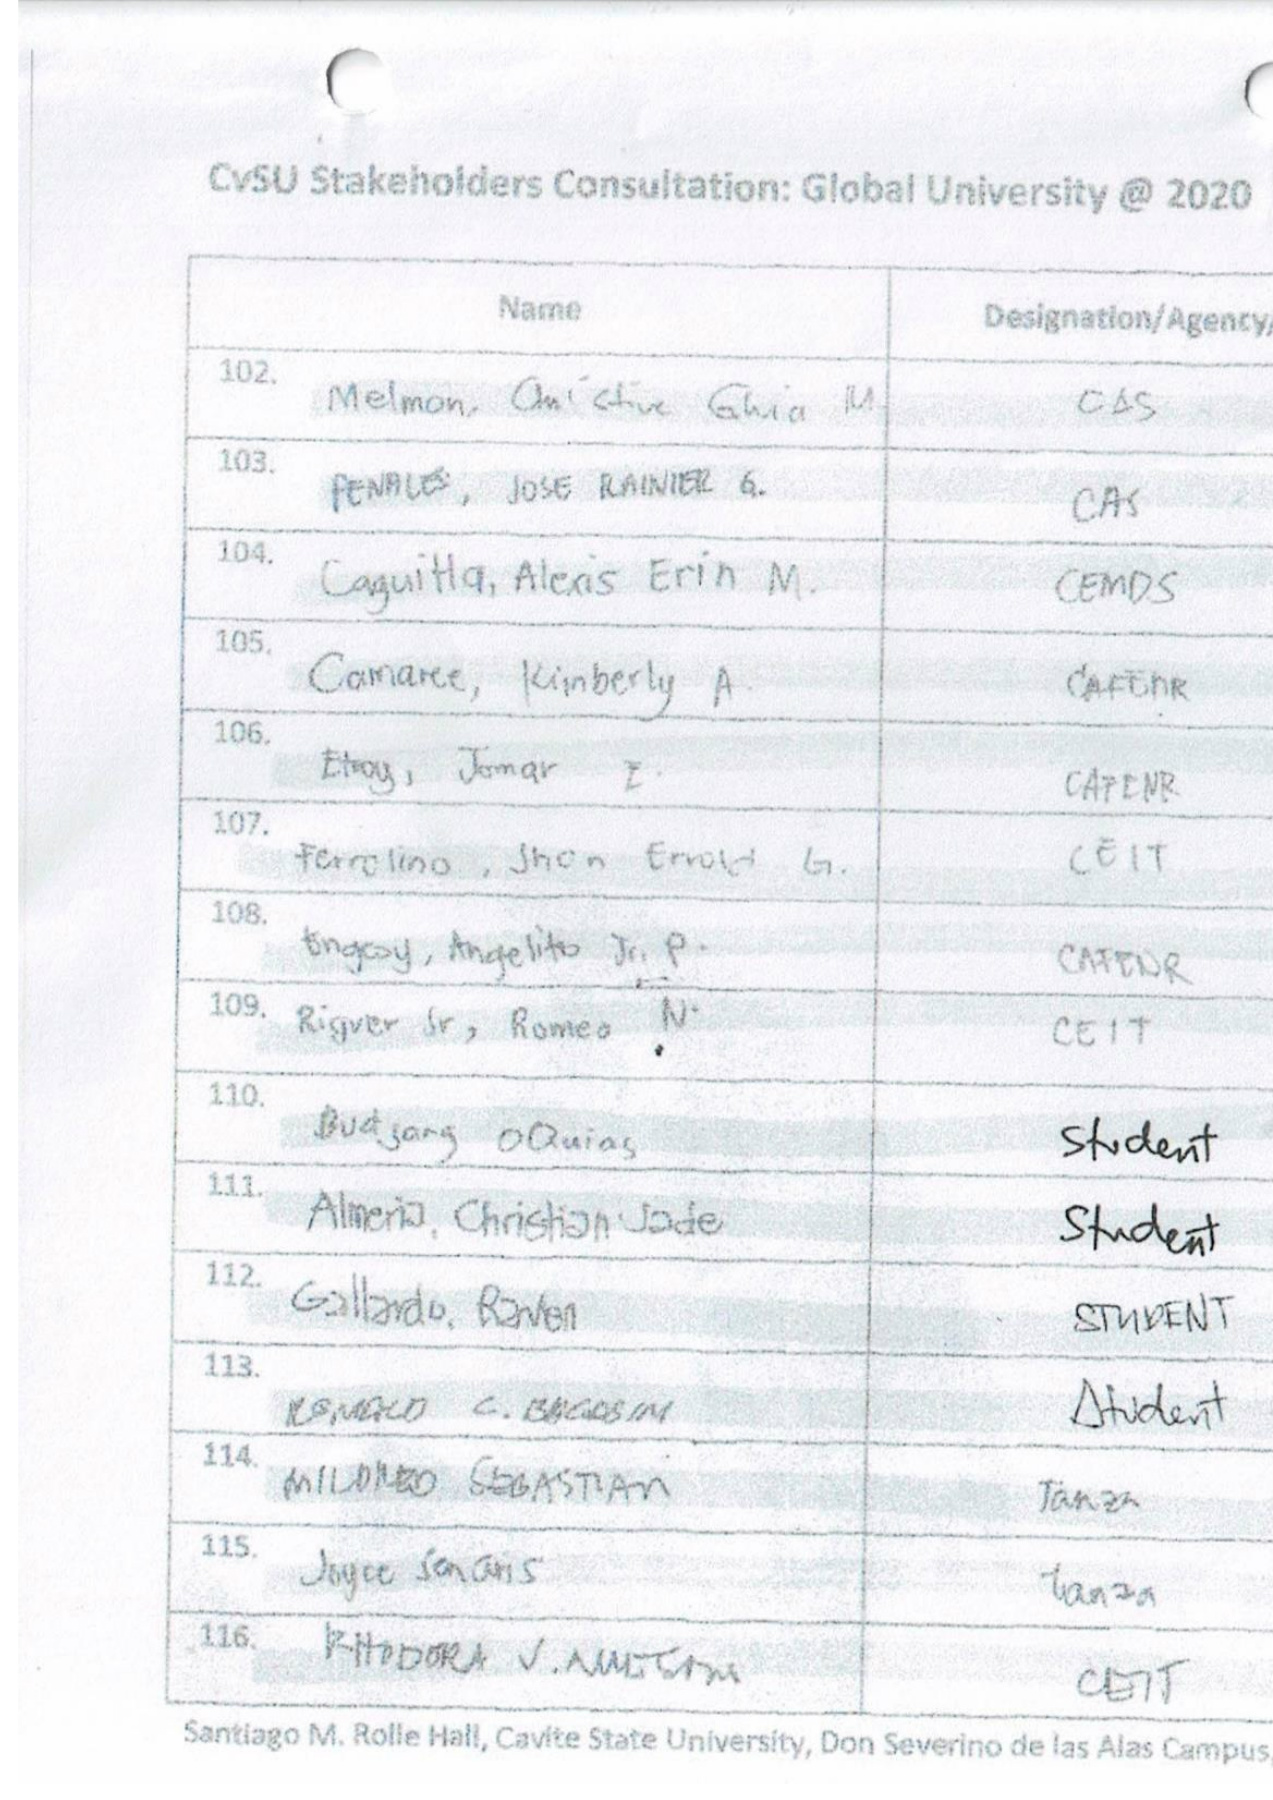 CvSU Stakeholders Consultation: Global University @ 2020
Name Designation/Agency/
102. Melmon, Ghia M CAS
103. PENALES, JOSE RAINIER G. CAS
104. Caguitla, Alexis Erin M. CEMDS
105. Camaree, Kimberly A. CAFENR
106. Etoy, Jomar I. CAFENR
107. Ferrolino, Jhon Errold G. CEIT
108. Engcoy, Angelito Jr. P. CAFENR
109. Riguer Sr, Romeo N. CEIT
110. Student
111. Almeria, Christian Jade Student
112. Gallardo, Raven STUDENT
113. C. Student
114. MILDRED SEBASTIAN Tanza
115. Joyce Tanza
116. RHODORA V. CEIT
Santiago M. Rolle Hall, Cavite State University, Don Severino de las Alas Campus,